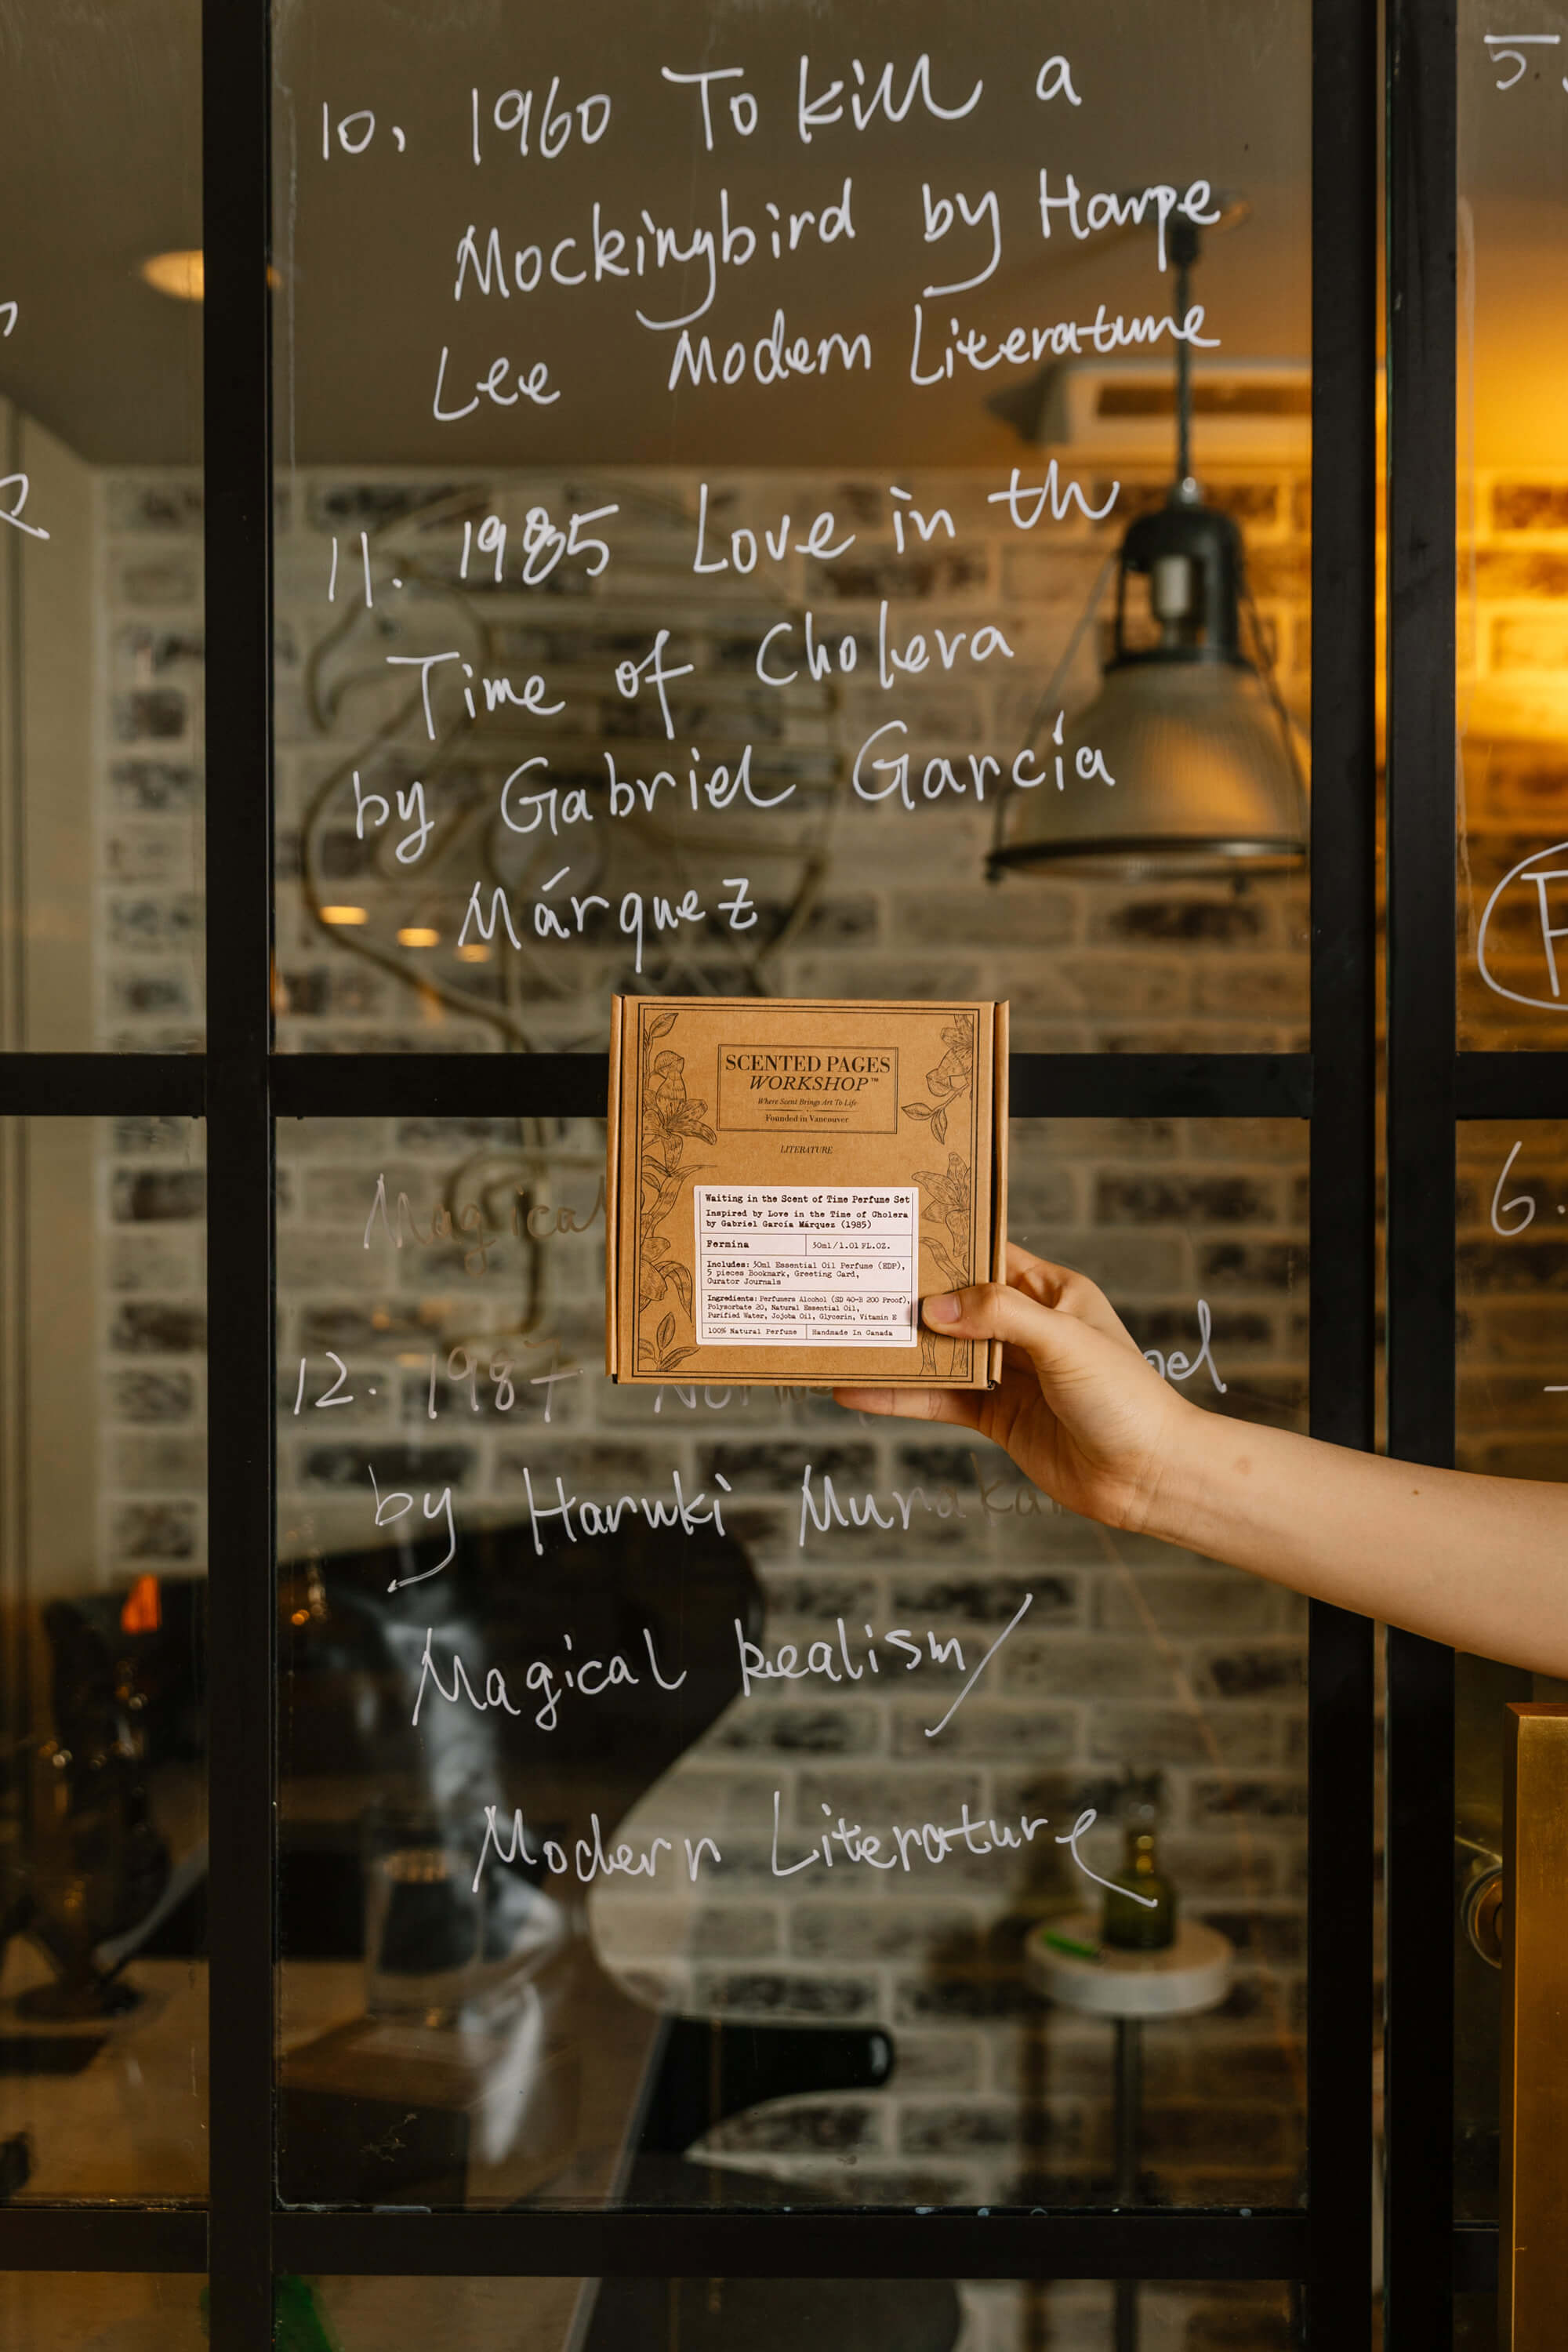 10, 1960 To kill a
Mockingbird by Harpe
Lee Modern Literature
11. 1985 Love in th
Time of Cholera
by Gabriel García
Márquez
SCENTED PAGES
WORKSHOP™
Where Scent Brings Art To Life
Founded in Vancouver
LITERATURE
Waiting in the Scent of Time Perfume Set
Inspired by Love in the Time of Cholera
by Gabriel García Márquez (1985)
Fermina 30ml/1.01 FL.OZ.
Includes: 30ml Essential Oil Perfume (EDP),
5 pieces Bookmark, Greeting Card,
Curator Journals
Ingredients: Perfumers Alcohol (SD 40-B 200 Proof),
Polysorbate 20, Natural Essential Oil,
Purified Water, Jojoba Oil, Glycerin, Vitamin E
100% Natural Perfume Handmade In Canada
Magical
12. 1987
by Haruki Muraka
Magical Realism/
Modern Literature
5.
6.